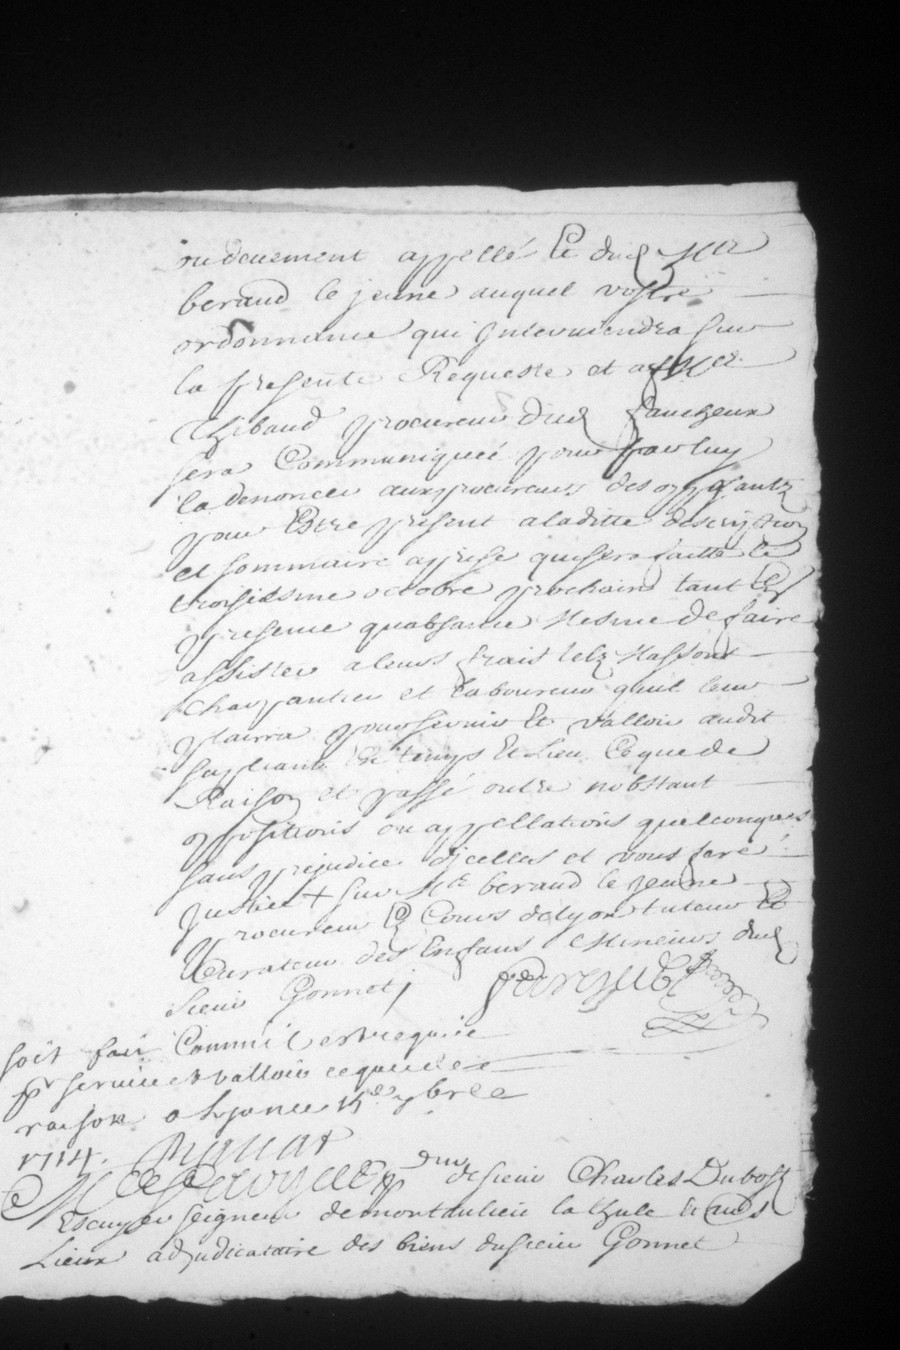 ou deuement appellé le dud Mtre
beraud le jeune auquel vostre
ordonnance qui Interviendra sur
la presente Requeste et a Mtre
Thibaud procureur dud faucheux
sera Communiquéé pour par luy
la denoncer aux procureurs des opposants
pour Estre present a laditte description
et sommaire apprise qui sera faitte le
troisiesme octobre prochain tant En
presence quabsance Mesme de faire
assister a leurs frais telz Massons
Charpantier et laboureurs quil leur
plairra pour servir Et valloir audit
supliant En temps Et Lieu Ce que de
Raison et passé outre nobstant
oppositions ou appellations quelconques
sans prejudice dicelles et vous feré
Justice + sur Me beraud le jeune
procureur Es Cours de lyon tuteur Et
Curateur des Enfans Mineurs dud
Sieur Gonnet
soit fait Comme il est requis
pr servir et valloir ce que de
raison a Lyon ce 7bre
1714.
du sieur Charles Dubost
Escuyer seigneur de montaulieu la thule Et autres
Lieux adjudicataire des biens du sieur Gonnet